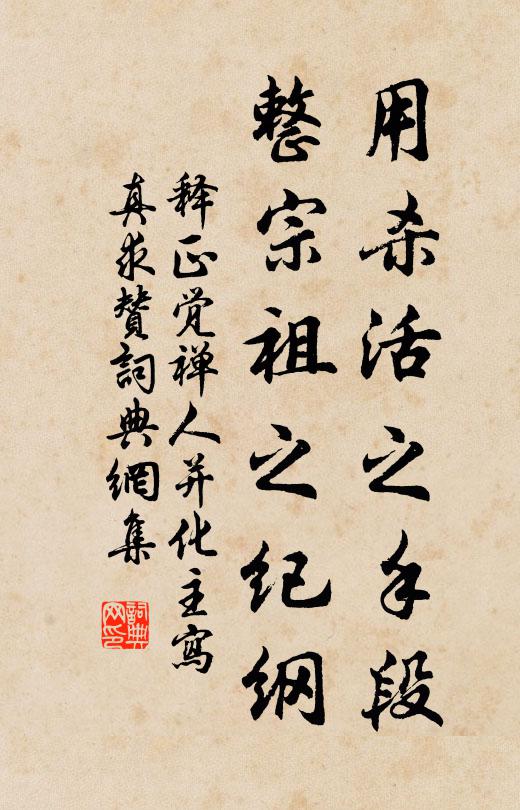 用杀活之手段
整宗祖之纪纲
释正觉禅人并化主写
真求赞詞典網集
詞典网印